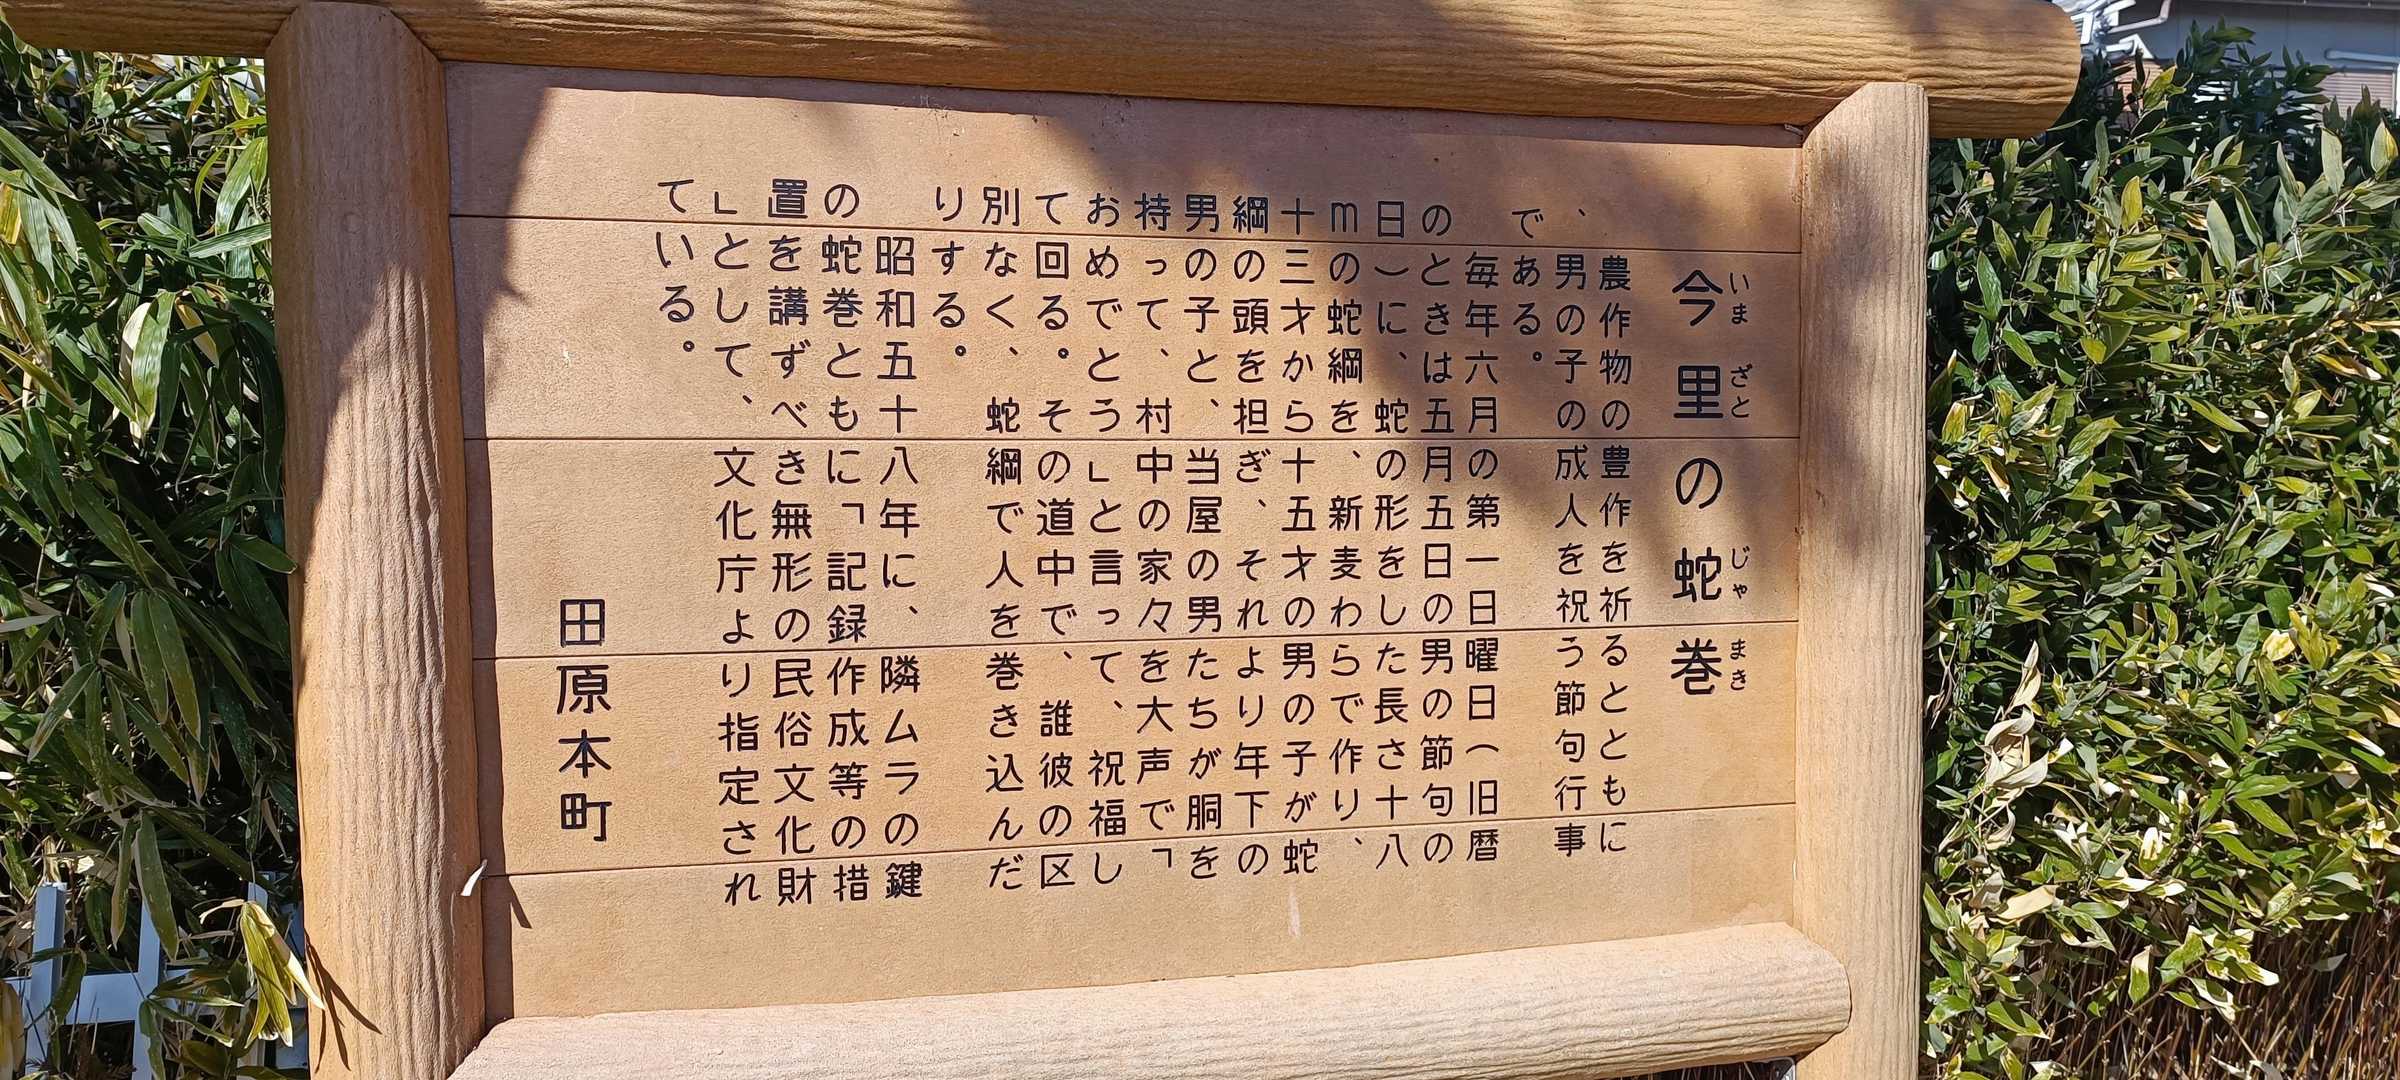 今里の蛇巻
いまざと じゃまき
農作物の豊作を祈るとともに
、男の子の成人を祝う節句行事
である。
毎年六月の第一日曜日（旧暦
のときは五月五日の男の節句の
日）に、蛇の形をした長さ十八
mの蛇綱を、新麦わらで作り、
十三才から十五才の男の子が蛇
綱の頭を担ぎ、それより年下の
男の子と、当屋の男たちが胴を
持って、村中の家々を大声で「
おめでとう」と言って、祝福し
て回る。その道中で、誰彼の区
別なく、蛇綱で人を巻き込んだ
りする。
昭和五十八年に、隣ムラの鍵
の蛇巻とともに「記録作成等の措
置を講ずべき無形の民俗文化財
」として、文化庁より指定され
ている。
田原本町